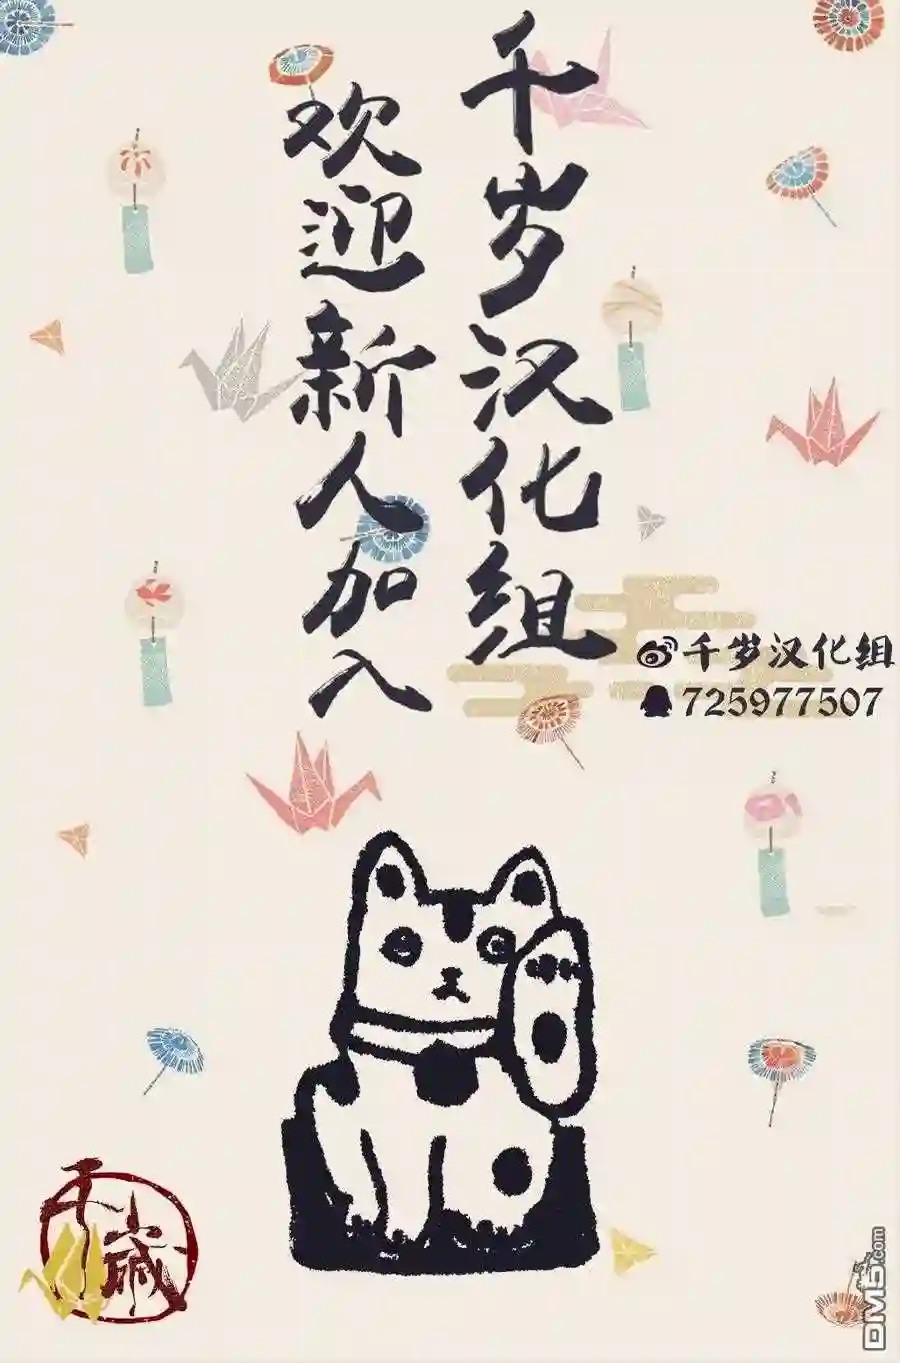 千岁汉化组
欢迎新人加入
千岁汉化组
725977507
千歲
DM5.com